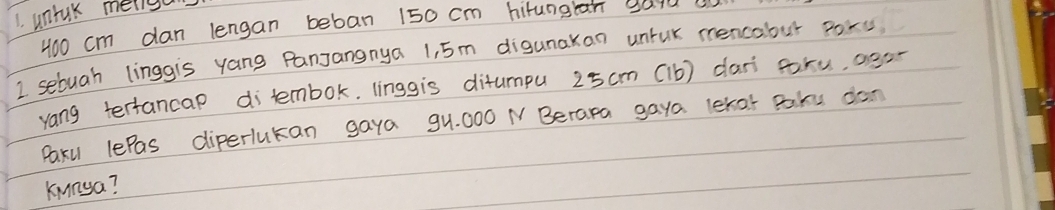 1. untuk
400 cm dan lengan beban 150 cm hitunglah gaya
2. sebuah linggis yang Panjangnya 1,5m digunakan untuk mencabut Paku,
yang tertancap di tembok. linggis ditumpu 25cm (lb) dari Paku. agar
Paku lepas diperlukan gaya 94.000 N Berapa gaya lekat Paku dan
KMnya?